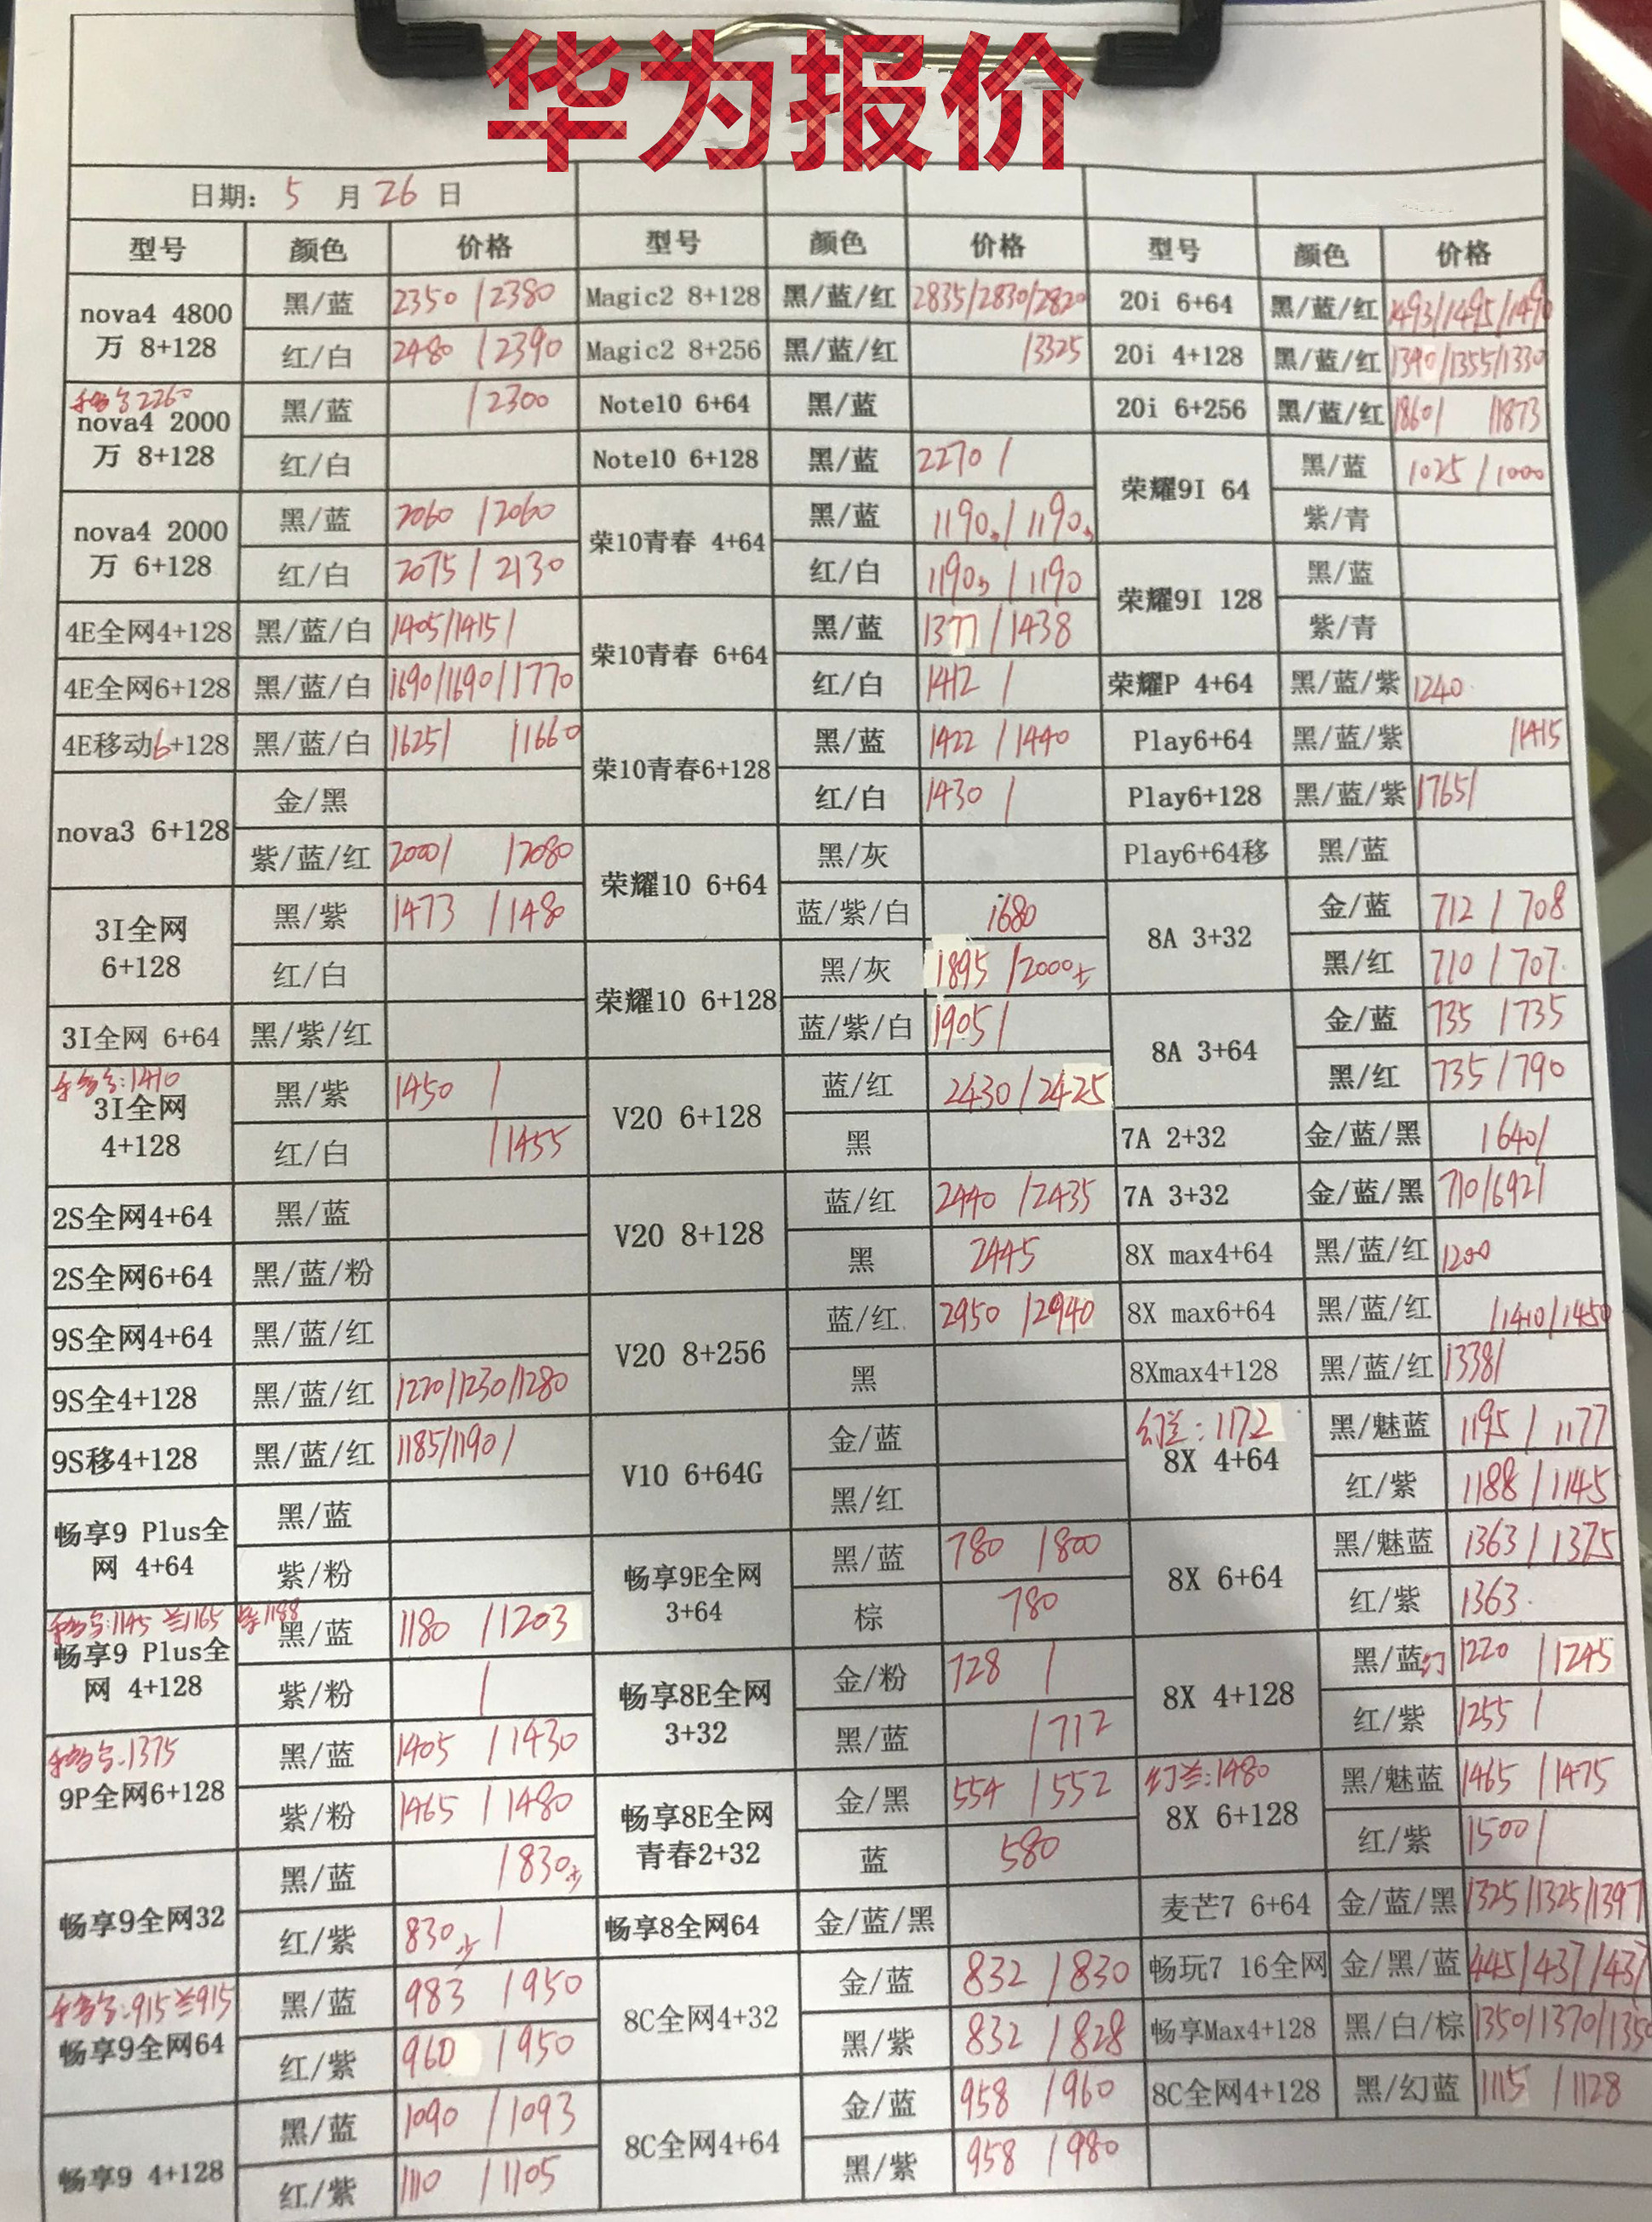 华为报价
日期: 5 月 26 日
型号 颜色 价格 型号 颜色 价格 型号 颜色 价格
nova4 4800万 8+128 黑/蓝 2350 /2380 Magic2 8+128 黑/蓝/红 2835/2830/2820 20i 6+64 黑/蓝/红 1493/1495/1490
红/白 2480 /2390 Magic2 8+256 黑/蓝/红 /3325 20i 4+128 黑/蓝/红 1390/1355/1330
2260
nova4 2000万 8+128 黑/蓝 /2300 Note10 6+64 黑/蓝 20i 6+256 黑/蓝/红 1860/ /1873
红/白 Note10 6+128 黑/蓝 2270 / 荣耀9I 64 黑/蓝 1025 /1000
nova4 2000万 6+128 黑/蓝 2060 /2060 荣10青春 4+64 黑/蓝 1190 / 1190 紫/青
红/白 2075 / 2130 红/白 1190 / 1190 荣耀9I 128 黑/蓝
4E全网4+128 黑/蓝/白 1405/1415/ 荣10青春 6+64 黑/蓝 1377 /1438 紫/青
4E全网6+128 黑/蓝/白 1690/1690/1770 红/白 1412 / 荣耀P 4+64 黑/蓝/紫 1240
4E移动6+128 黑/蓝/白 1625/ /1660 荣10青春6+128 黑/蓝 1422 /1440 Play6+64 黑/蓝/紫 /1415
nova3 6+128 金/黑 红/白 1430 / Play6+128 黑/蓝/紫 1765/
紫/蓝/红 2000/ /2080 荣耀10 6+64 黑/灰 Play6+64移 黑/蓝
3I全网 6+128 黑/紫 1473 /1480 蓝/紫/白 1680 8A 3+32 金/蓝 712 / 708
红/白 荣耀10 6+128 黑/灰 1895 /2000 黑/红 710 / 707
3I全网 6+64 黑/紫/红 蓝/紫/白 1905/ 8A 3+64 金/蓝 735 /735
:1410
3I全网 4+128 黑/紫 1450 / V20 6+128 蓝/红 2430/2425 黑/红 735/790
红/白 /1455 黑 7A 2+32 金/蓝/黑 /640/
2S全网4+64 黑/蓝 V20 8+128 蓝/红 2440 /2435 7A 3+32 金/蓝/黑 710/692/
2S全网6+64 黑/蓝/粉 黑 2445 8X max4+64 黑/蓝/红 1200
9S全网4+64 黑/蓝/红 V20 8+256 蓝/红 2950 /2940 8X max6+64 黑/蓝/红 /1410/1450
9S全4+128 黑/蓝/红 1220/1230/1280 黑 8Xmax4+128 黑/蓝/红 1338/
幻兰: 1172
9S移4+128 黑/蓝/红 1185/1190/ V10 6+64G 金/蓝 8X 4+64 黑/魅蓝 1195 / 1177
畅享9 Plus全网 4+64 黑/蓝 黑/红 红/紫 1188 /1145
紫/粉 畅享9E全网 3+64 黑/蓝 780 /800 8X 6+64 黑/魅蓝 1363/1375
:1145 兰1165 1188
畅享9 Plus全网 4+128 黑/蓝 1180 /1203 棕 780 红/紫 1363
紫/粉 / 畅享8E全网 3+32 金/粉 728 / 8X 4+128 黑/蓝幻 1220 /1245
1375
9P全网6+128 黑/蓝 1405 /1430 黑/蓝 /712 红/紫 1255 /
幻兰:1480
紫/粉 1465 /1480 畅享8E全网青春2+32 金/黑 554 /552 8X 6+128 黑/魅蓝 1465 /1475
畅享9全网32 黑/蓝 /830少 蓝 580 红/紫 1500/
红/紫 830少/ 畅享8全网64 金/蓝/黑 麦芒7 6+64 金/蓝/黑 1325/1325/1397
:915 兰915
畅享9全网64 黑/蓝 983 /950 8C全网4+32 金/蓝 832 /830 畅玩7 16全网 金/黑/蓝 445/437/437
红/紫 960 /950 黑/紫 832 /828 畅享Max4+128 黑/白/棕 1350/1370/1350
畅享9 4+128 黑/蓝 1090 /1093 8C全网4+64 金/蓝 958 /960 8C全网4+128 黑/幻蓝 1115 /1128
红/紫 1110 /1105 黑/紫 958 /980